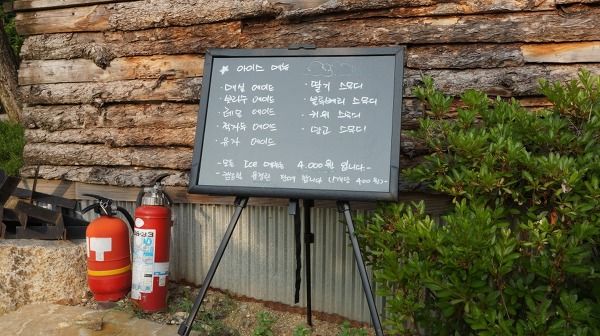 * 아이스 메뉴
· 매실 에이드
· 보리수 에이드
· 레몬 에이드
· 적겨자 에이드
· 유자 에이드
· 딸기 스무디
· 블루베리 스무디
· 키위 스무디
· 망고 스무디
- 모든 Ice 메뉴는 4.000원 입니다-
- 판매 합니다